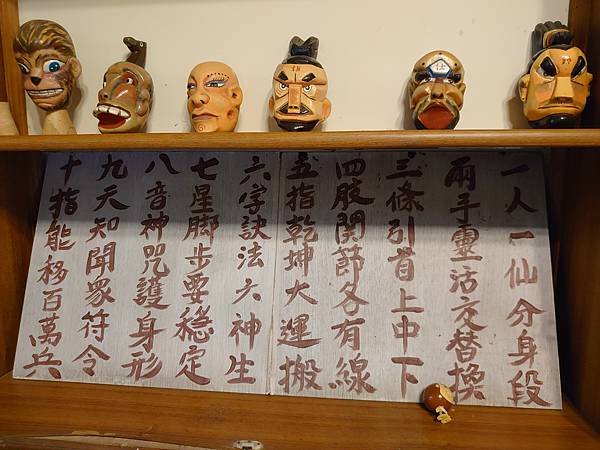 一人一仙分身段
兩手靈活交替換
三條引首上中下
四肢関節各有線
五指乾坤大運搬
六字訣法六神生
七星脚步要穩定
八音神咒護身形
九天知聞眾符令
十指能移百萬兵